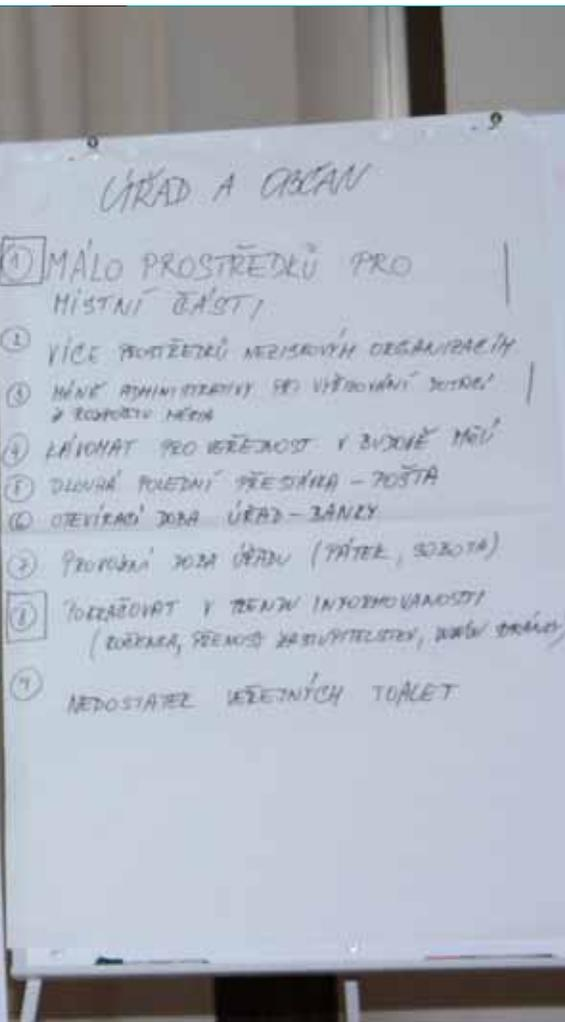 ÚŘAD A OBČAN
① MÁLO PROSTŘEDKŮ PRO
MÍSTNÍ ČÁSTI
② VÍCE PROSTŘEDKŮ NEZISKOVÝM ORGANIZACÍM
③ MÉNĚ ADMINISTRATIVY PŘI VYŘIZOVÁNÍ DOTACÍ
Z ROZPOČTU MĚSTA
④ KÁVOMAT PRO VEŘEJNOST V BUDOVĚ MĚÚ
⑤ DLOUHÁ POLEDNÍ PŘESTÁVKA - POŠTA
⑥ OTEVÍRACÍ DOBA ÚŘAD - BANKY
⑦ PROVOZNÍ DOBA ÚŘADU (PÁTEK, SOBOTA)
⑧ POKRAČOVAT V TRENDU INFORMOVANOSTI
(ROČENKA, PŘENOSY ZASTUPITELSTEV, STRÁNKY)
⑨ NEDOSTATEK VEŘEJNÝCH TOALET